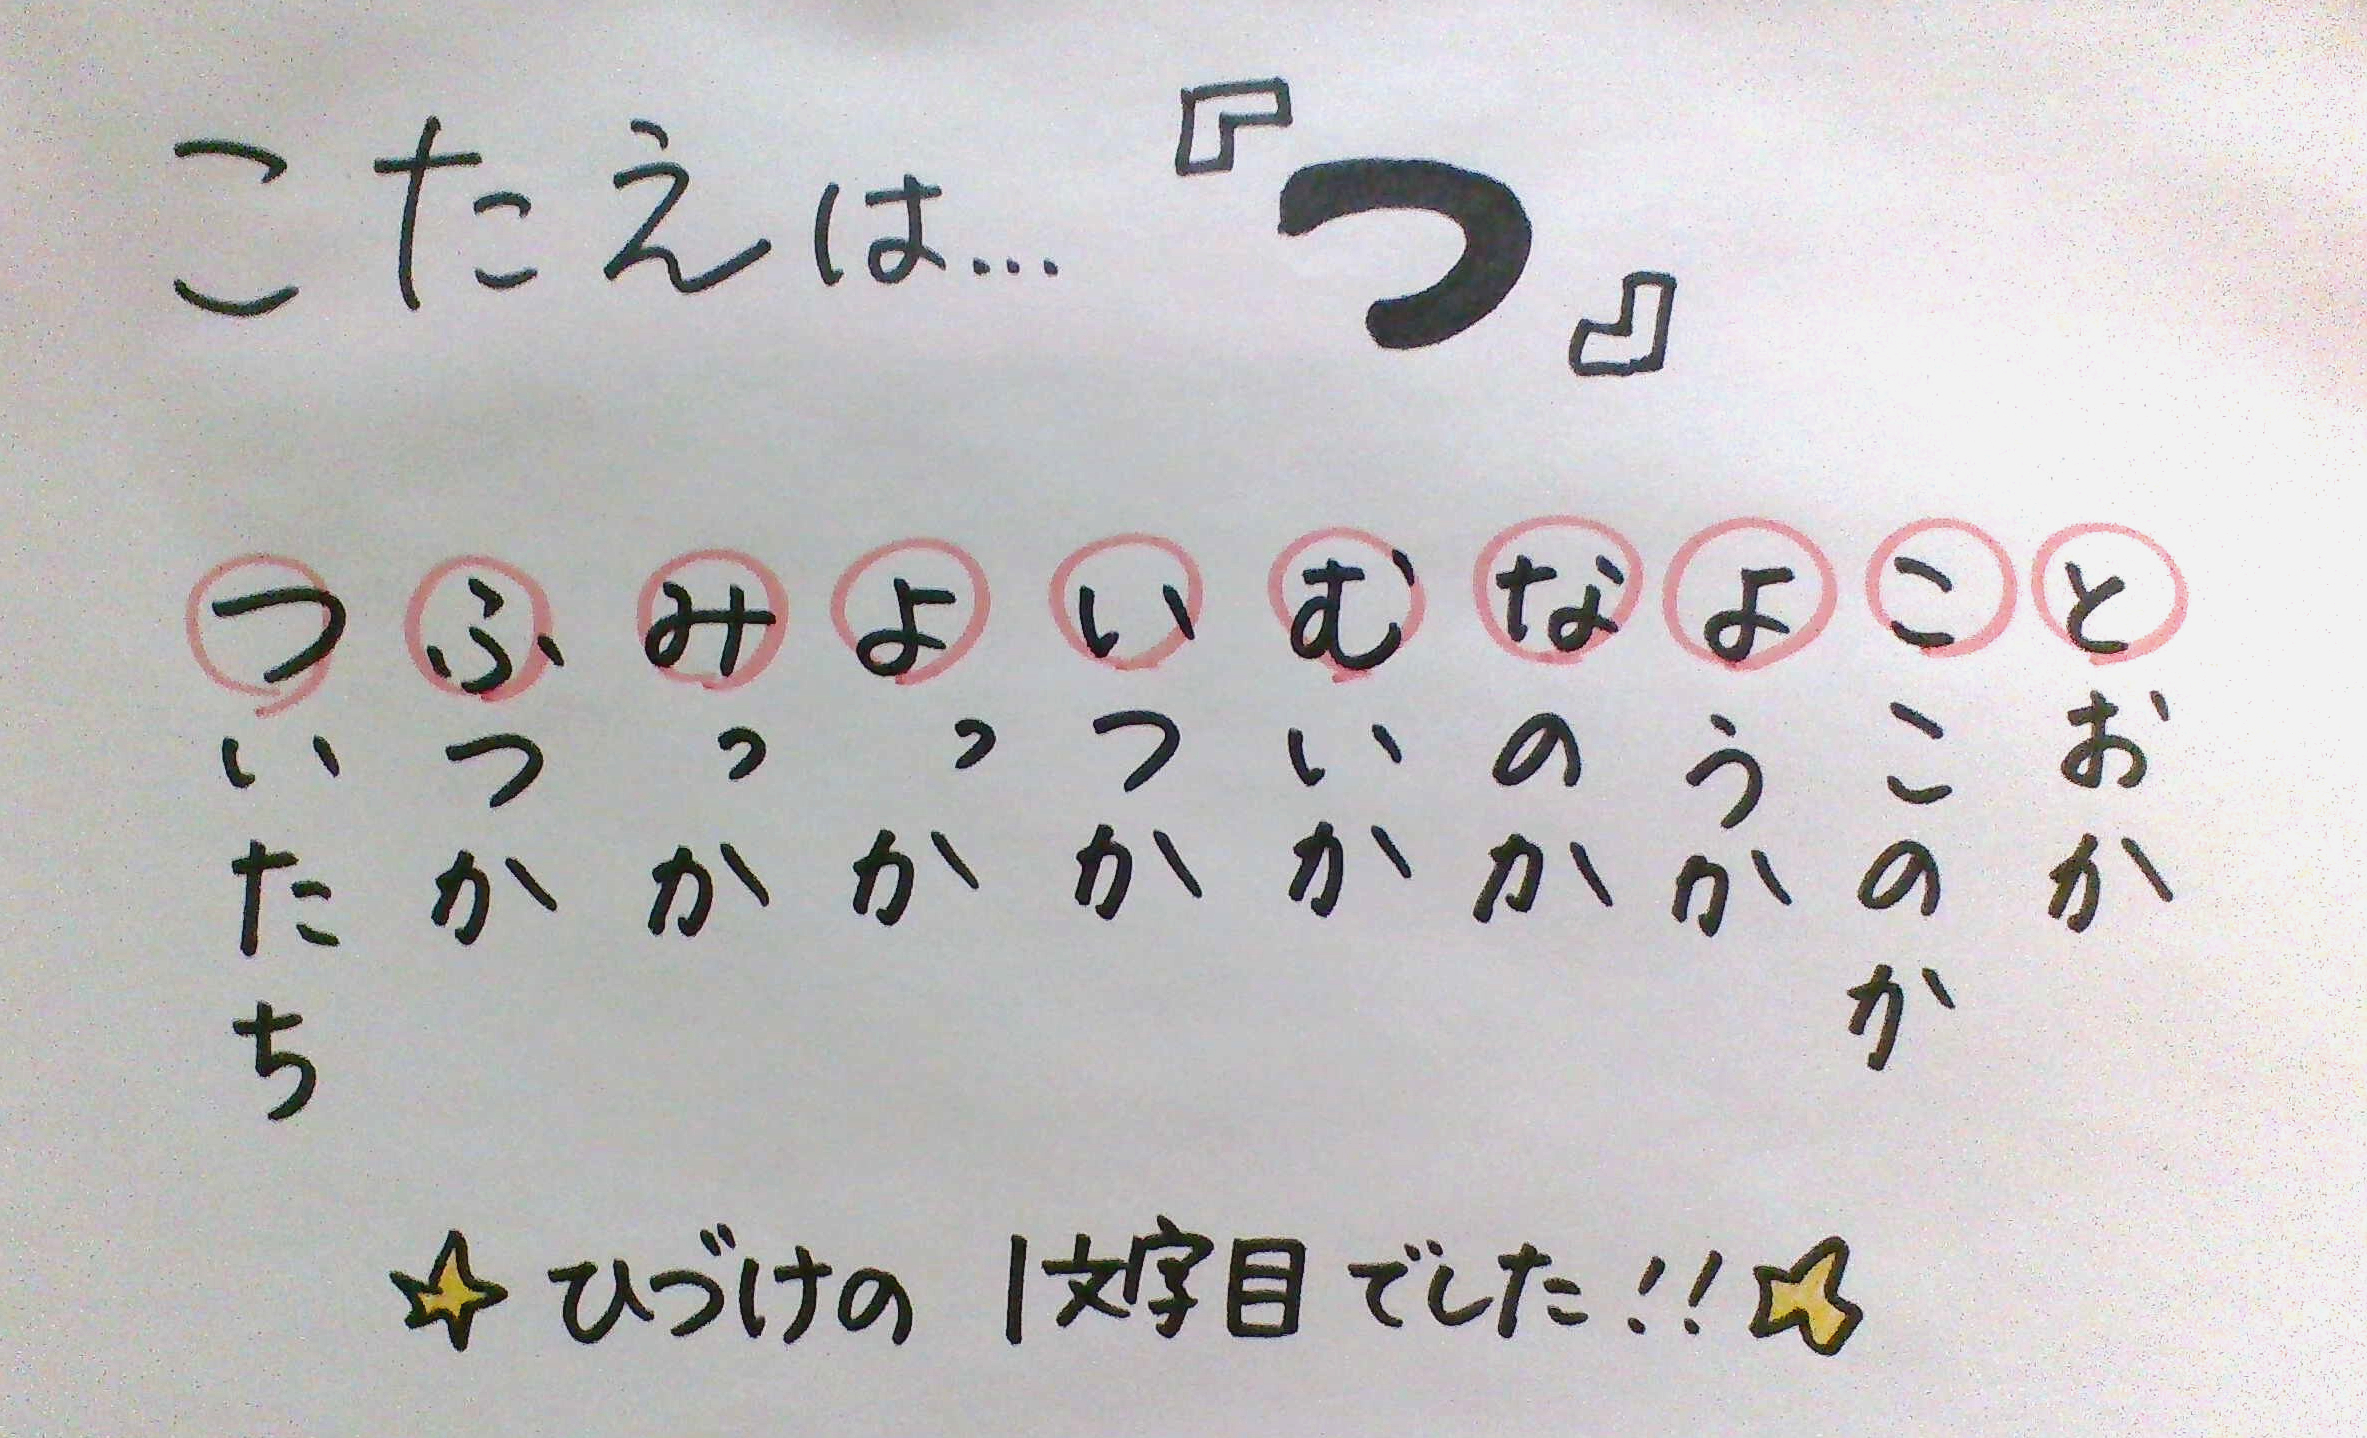 こたえは…『つ』
ついたち
ふつか
みっか
よっか
いつか
むいか
なのか
ようか
ここのか
とおか
☆ひづけの 1文字目でした!!☆